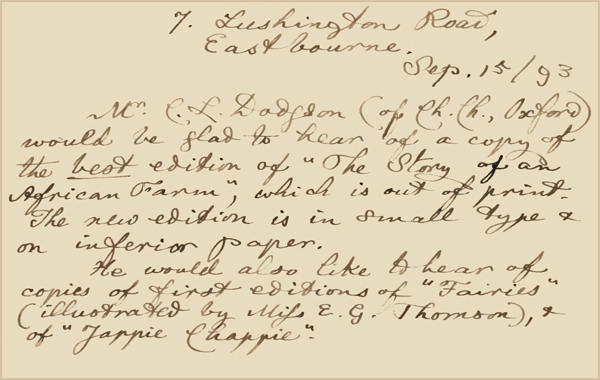 7. Lushington Road,
Eastbourne.
Sep. 15/93
Mr. C. L. Dodgson (of Ch. Ch., Oxford)
would be glad to hear of a copy of
the best edition of "The Story of an
African Farm", which is out of print.
The new edition is in small type &
on inferior paper.
He would also like to hear of
copies of first editions of "Fairies"
(illustrated by Miss E. G. Thomson), &
of "Jappie Chappie".